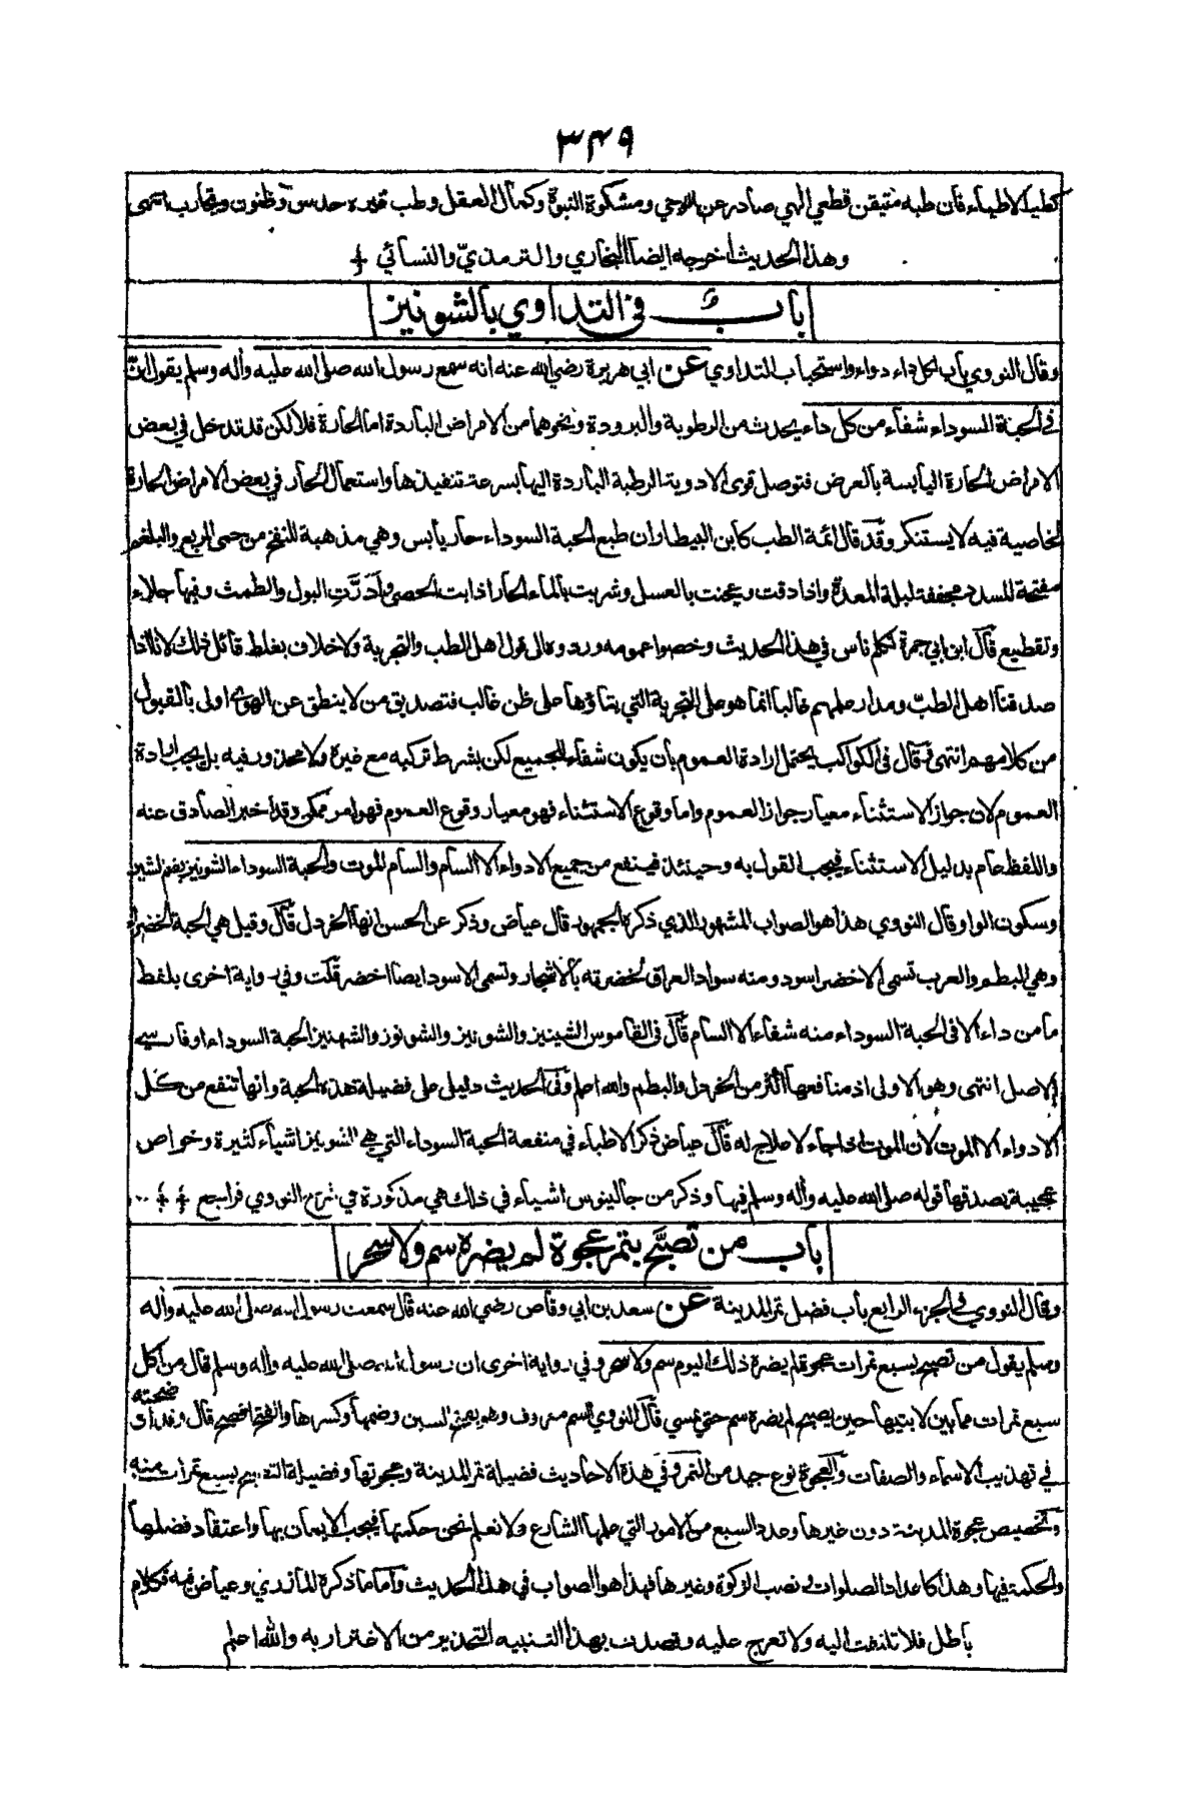 ٣٤٩
كطب الاطباء فان طبه متيقن قطعي الهي صادر عن الوحي ومشكوة النبوة وكمال العقل وطب غيره حدس وظنون وتجارب انتهى
وهذا الحديث اخرجه ايضا البخاري والترمذيّ والنسائي
باب في التداوي بالشونيز
وقال النووي باب لكل داء دواء واستحباب التداوي عن ابي هريرة رضي الله عنه انه سمع رسول الله صلى الله عليه وأله وسلم يقول ان
في الحبة السوداء شفاء من كل داء يحدث من الرطوبة والبرودة ونحوهما من الامراض الباردة اما الحارة فلا لكن قد تدخل في بعض
الامراض الحارة اليابسة بالعرض فتوصل قوى الادوية الرطبة الباردة اليها بسرعة تنفيذها واستعمال الحار في بعض الامراض الحارة
لخاصية فيه لا يستنكر وقد قال ائمة الطب كابن البيطار ان طبع الحبة السوداء حار يابس وهي مذهبة للنفخ من حمى الربع والبلغم
مفتحة للسدد مجففة لبلة المعدة واذا دقت وعجنت بالعسل وشربت بالماء الحار اذابت الحصى وأدرّتِ البول والطمث وفيها جلاء
وتقطيع قال ابن ابي جمرة تكلم ناس في هذا الحديث وخصوا عمومه وردوه الى قول اهل الطب والتجربة ولا خلاف بغلط قائل ذلك لانا اذا
صدقنا اهل الطبّ ومدار علمهم غالبا انما هو على التجربة التي بناؤها على ظن غالب فتصديق من لا ينطق عن الهوى اولى بالقبول
من كلامهم انتهى وقال في الكواكب يحتمل ارادة العموم بأن يكون شفاء للجميع لكن بشرط تركبه مع غيره ولا محذور فيه بل يجب ارادة
العموم لان جواز الاستثناء معيار جواز العموم واما وقوع الاستثناء فهو معيار وقوع العموم فهو امر ممكن وقد اخبر الصادق عنه
واللفظ عام بدليل الاستثناء فيجب القول به وحينئذ فينفع من جميع الادواء الا السام والسام الموت والحبة السوداء الشونيز بضم الشين
وسكون الواو قال النووي هذا هو الصواب المشهور الذي ذكره الجمهور قال عياض وذكر عن الحسن انها الخردل قال وقيل هي الحبة الخضراء
وهي البطم والعرب تسمى الاخضر اسود ومنه سواد العراق لخضرته بالاشجار وتسمى الاسود ايضا اخضر قلت وفي رواية اخرى بلفظ
ما من داء الا في الحبة السوداء منه شفاء الا السام قال في القاموس الشينيز والشونيز والشونوز والشهنيز الحبة السوداء او فارسي
الاصل انتهى وهو الاولى اذ منافعها اكثر من الخردل والبطم والله اعلم وفي الحديث دليل على فضيلة هذه الحبة وانها تنفع من كل
الادواء الا الموت لان الموت اذا جاء لا علاج له قال عياض ذكر الاطباء في منفعة الحبة السوداء التي هي الشونيز اشياء كثيرة وخواص
عجيبة يصدقها قوله صلى الله عليه وأله وسلم فيها وذكر من جالينوس اشياء في ذلك هي مذكورة في شرح النووي فراجع
باب من تصبَّح بتمر عجوة لم يضره سم ولا سحر
وقال النووي في الجزء الرابع باب فضل تمر المدينة عن سعد بن ابي وقاص رضي الله عنه قال سمعت رسول الله صلى الله عليه وأله
وسلم يقول من تصبح بسبع تمرات عجوة لم يضره ذلك اليوم سم ولا سحر وفي رواية اخرى ان رسول الله صلى الله عليه وأله وسلم قال من أكل
سبع تمرات مما بين لابتيها حين يصبح لم يضره سم حتى يمسي قال النووي السم معروف وهو بفتح السين وضمها وكسرها والفتح افصح قال وقد اوضحته
في تهذيب الاسماء والصفات والعجوة نوع جيد من التمر وفي هذه الاحاديث فضيلة تمر المدينة وعجوتها وفضيلة التصبح بسبع تمرات منه
وتخصيص عجوة المدينة دون غيرها وعدد السبع من الامور التي علمها الشارع ولا نعلم نحن حكمتها فيجب الايمان بها واعتقاد فضلها
والحكمة فيها وهذا كاعداد الصلوات ونصب الزكوة وغيرها فهذا هو الصواب في هذا الحديث وأما ما ذكره المازدني وعياض فيه فكلام
باطل فلا تلتفت اليه ولا تعرج عليه وقصدت بهذا التنبيه التحذير من الاغترار به والله اعلم